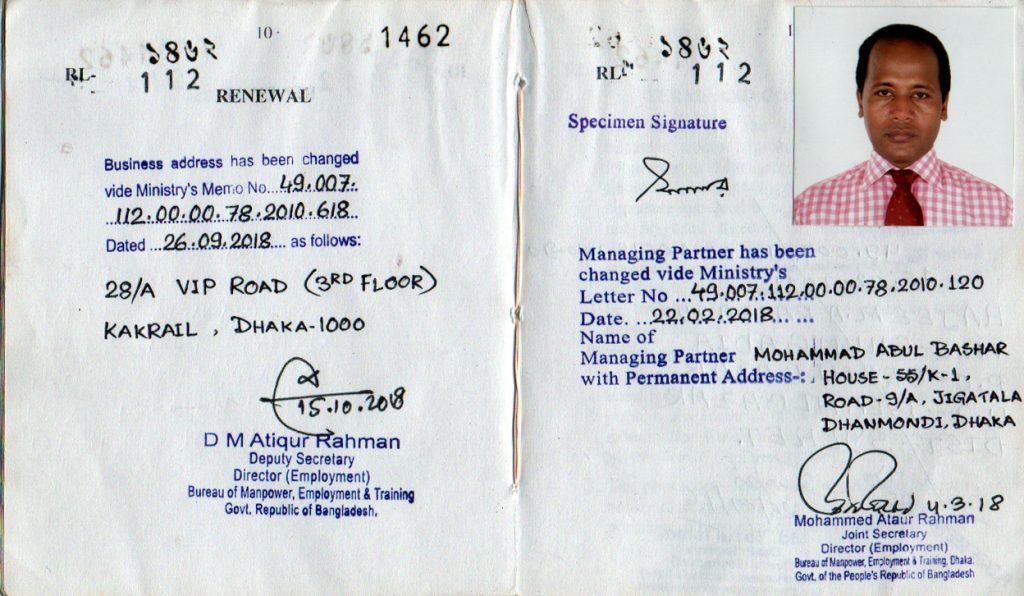 10
1462
১৪৬২
RL-
112
RENEWAL
Business address has been changed
vide Ministry's Memo No...49.007.
112.00.00.78.2010.618
Dated ...26.09.2018.... as follows:
28/A VIP ROAD (3RD FLOOR)
KAKRAIL, DHAKA-1000
15.10.2018
D M Atiqur Rahman
Deputy Secretary
Director (Employment)
Bureau of Manpower, Employment & Training
Govt. Republic of Bangladesh.
১৪৬২
RL
112
Specimen Signature
Managing Partner has been
changed vide Ministry's
Letter No ...49.007.112.00.00.78.2010.120
Date. ...22.02.2018... ...
Name of
Managing Partner MOHAMMAD ABUL BASHAR
with Permanent Address-: HOUSE-55/K-1,
ROAD-9/A, JIGATALA
DHANMONDI, DHAKA
4.3.18
Mohammed Ataur Rahman
Joint Secretary
Director (Employment)
Bureau of Manpower, Employment & Training, Dhaka.
Govt. of the People's Republic of Bangladesh